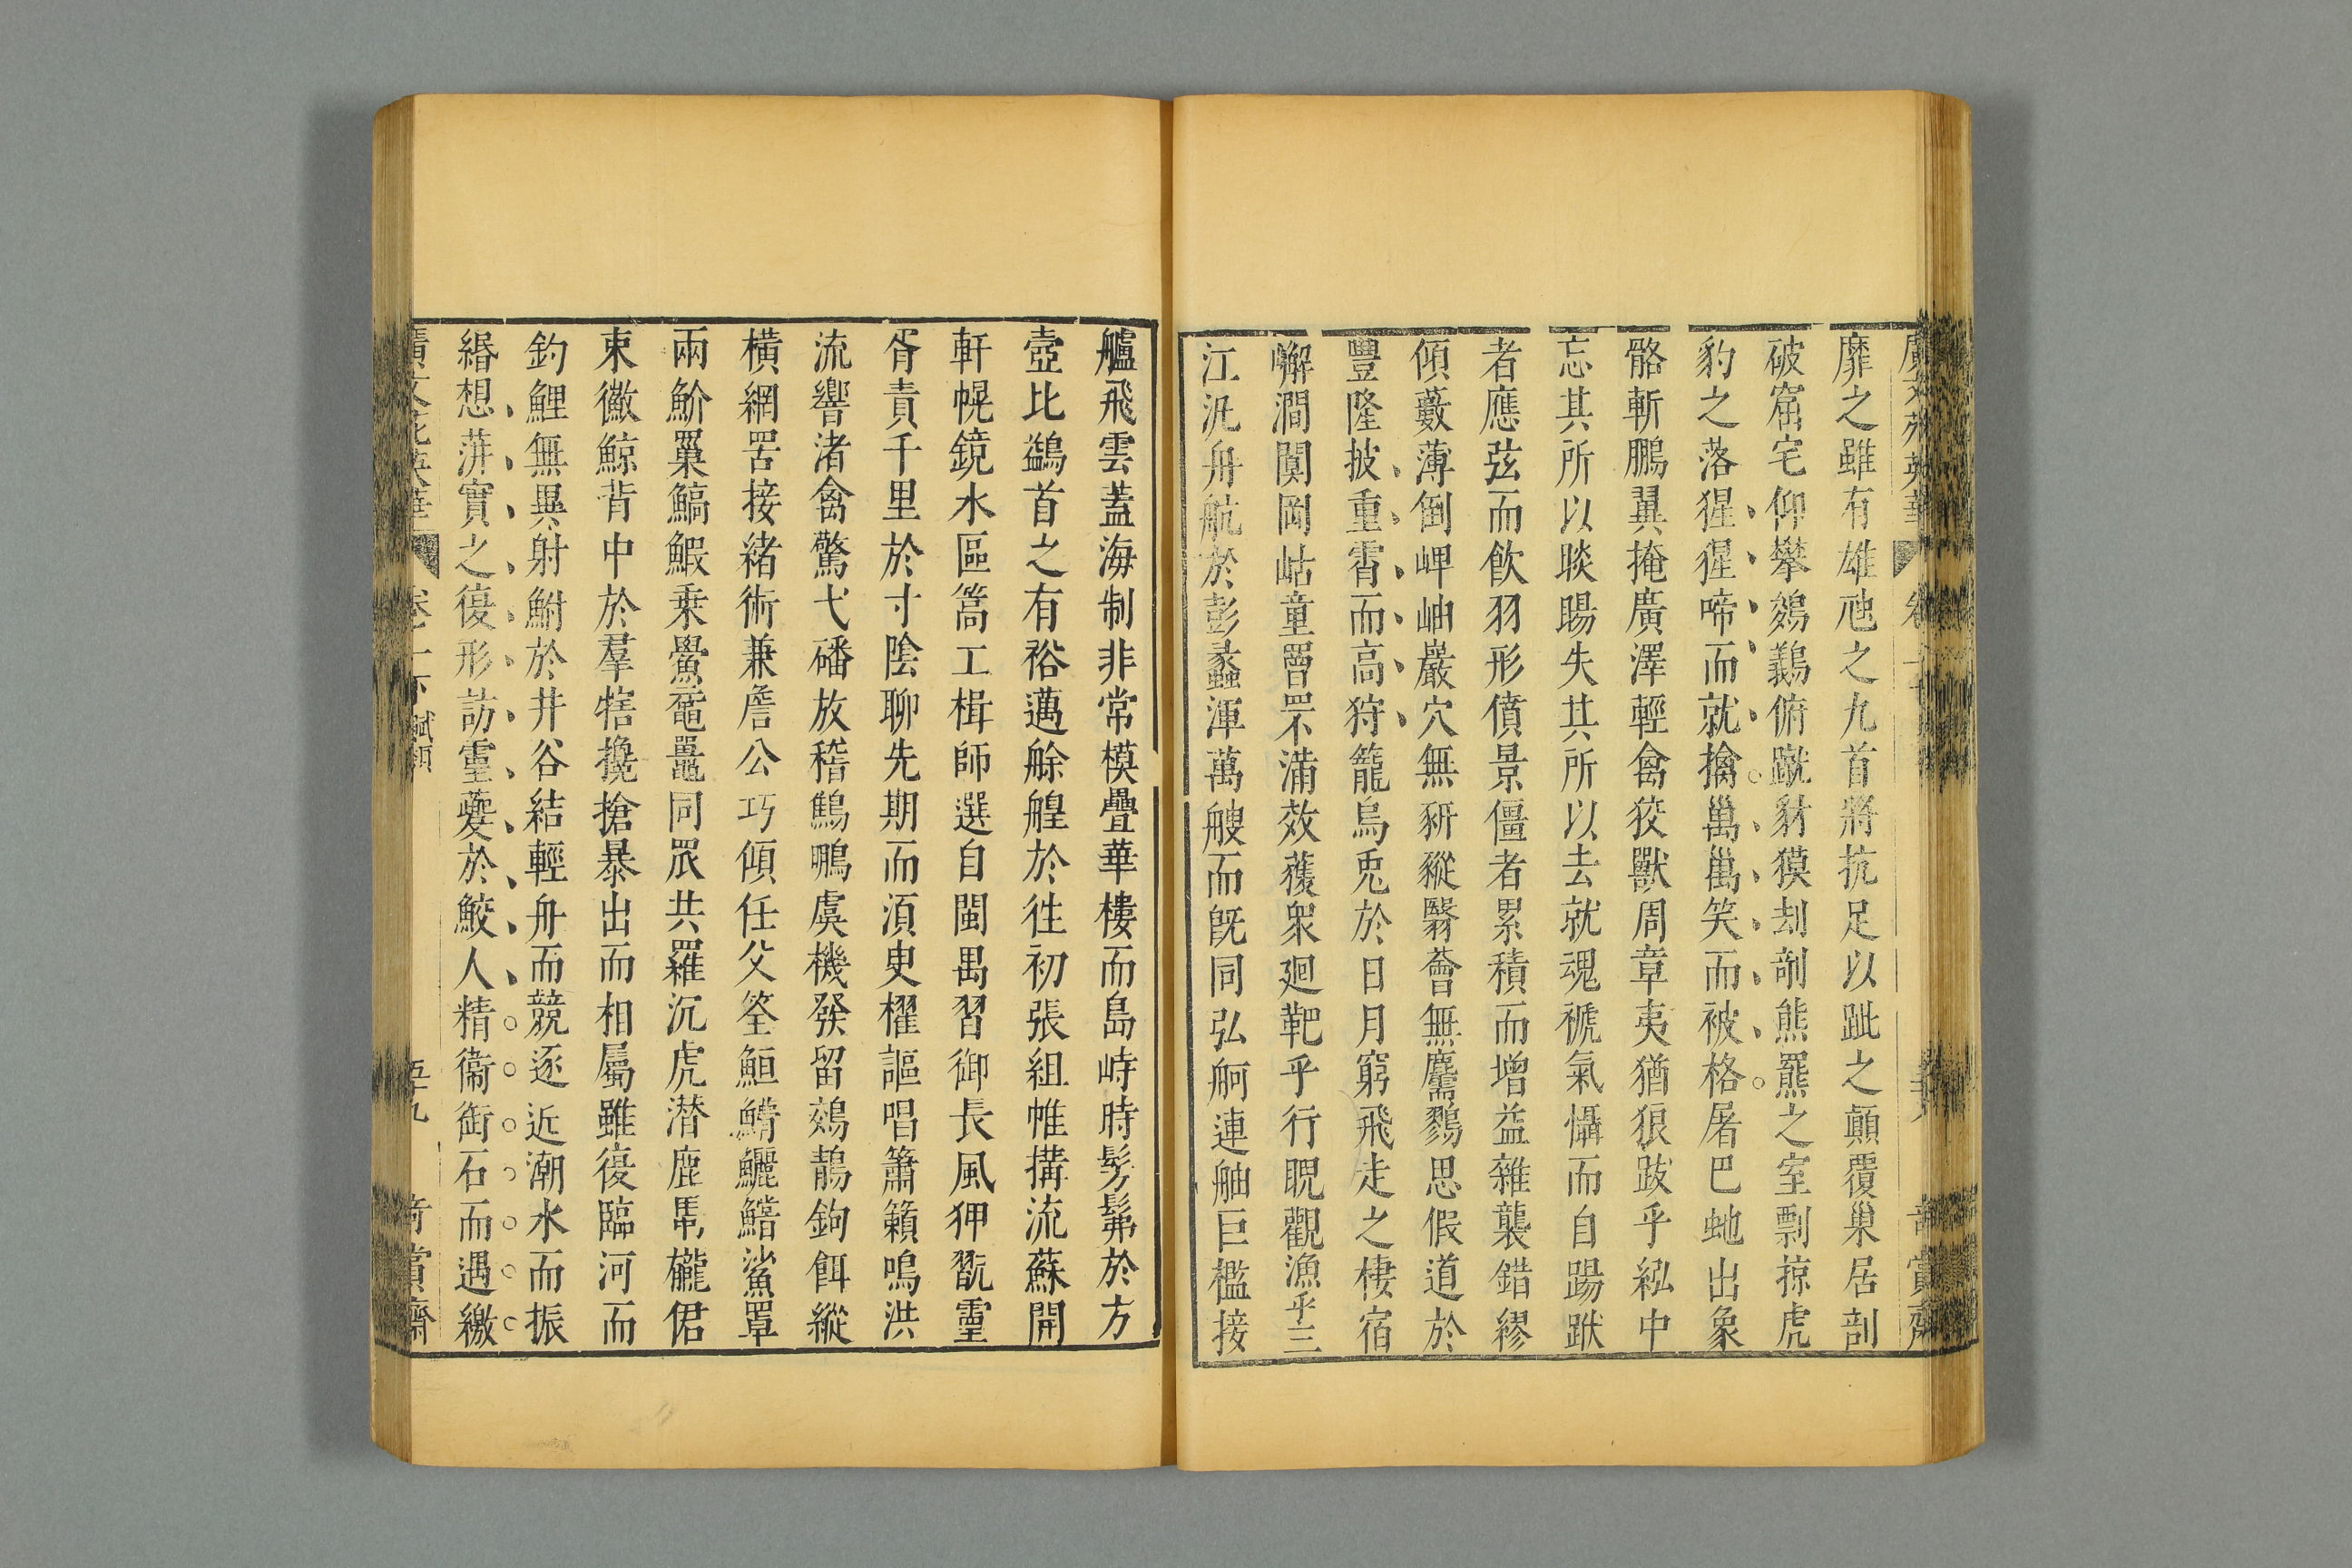 靡之雖有雄虺之九首將抗足以跐之顛覆巢居剖
破窟宅仰攀鵕䴊俯蹴豺獏刦剞熊羆之室剽掠虎
豹之落猩猩啼而就擒𥝋𥝋笑而被格屠巴虵出象
骼斬鵬翼掩廣澤輕禽狡獸周章夷猶狼跋乎紭中
忘其所以睒睗失其所以去就魂褫氣懾而自踢䟮
者應弦而飲羽形僨景僵者累積而增益雜襲錯繆
傾藪薄倒岬岫巖穴無豜豵翳薈無麡鷚思假道於
豐隆披重霄而高狩籠烏兎於日月窮飛走之棲宿
嶰澗闃岡岵童罾罘滿效獲衆廻靶乎行睨觀漁乎三
江汎舟航於彭蠡渾萬艘而旣同弘舸連舳巨檻接
艫飛雲蓋海制非常模疊華樓而島峙時髣髴於方
壺比鷁首之有裕邁艅艎於徃初張組帷搆流蘇開
軒幌鏡水區篙工楫師選自閩禺習御長風狎翫靈
胥責千里於寸陰聊先期而湏臾櫂謳唱簫籟鳴洪
流響渚禽驚弋磻放稽鷦䳟虞機發留鵁鶄鉤餌縱
橫網罟接緒術兼詹公巧傾任父筌䱎䲛鱺鱨鯊罩
兩魪罺鰝鰕乗鱟黿鼉同罛共羅沉虎潜鹿馽𩏩僒
束徽鯨背中於羣犗攙搶暴出而相屬雖復臨河而
釣鯉無異射鮒於井谷結輕舟而競逐迎潮水而振
緡想蓱實之復形訪靈夔於鮫人精衞銜石而遇繳